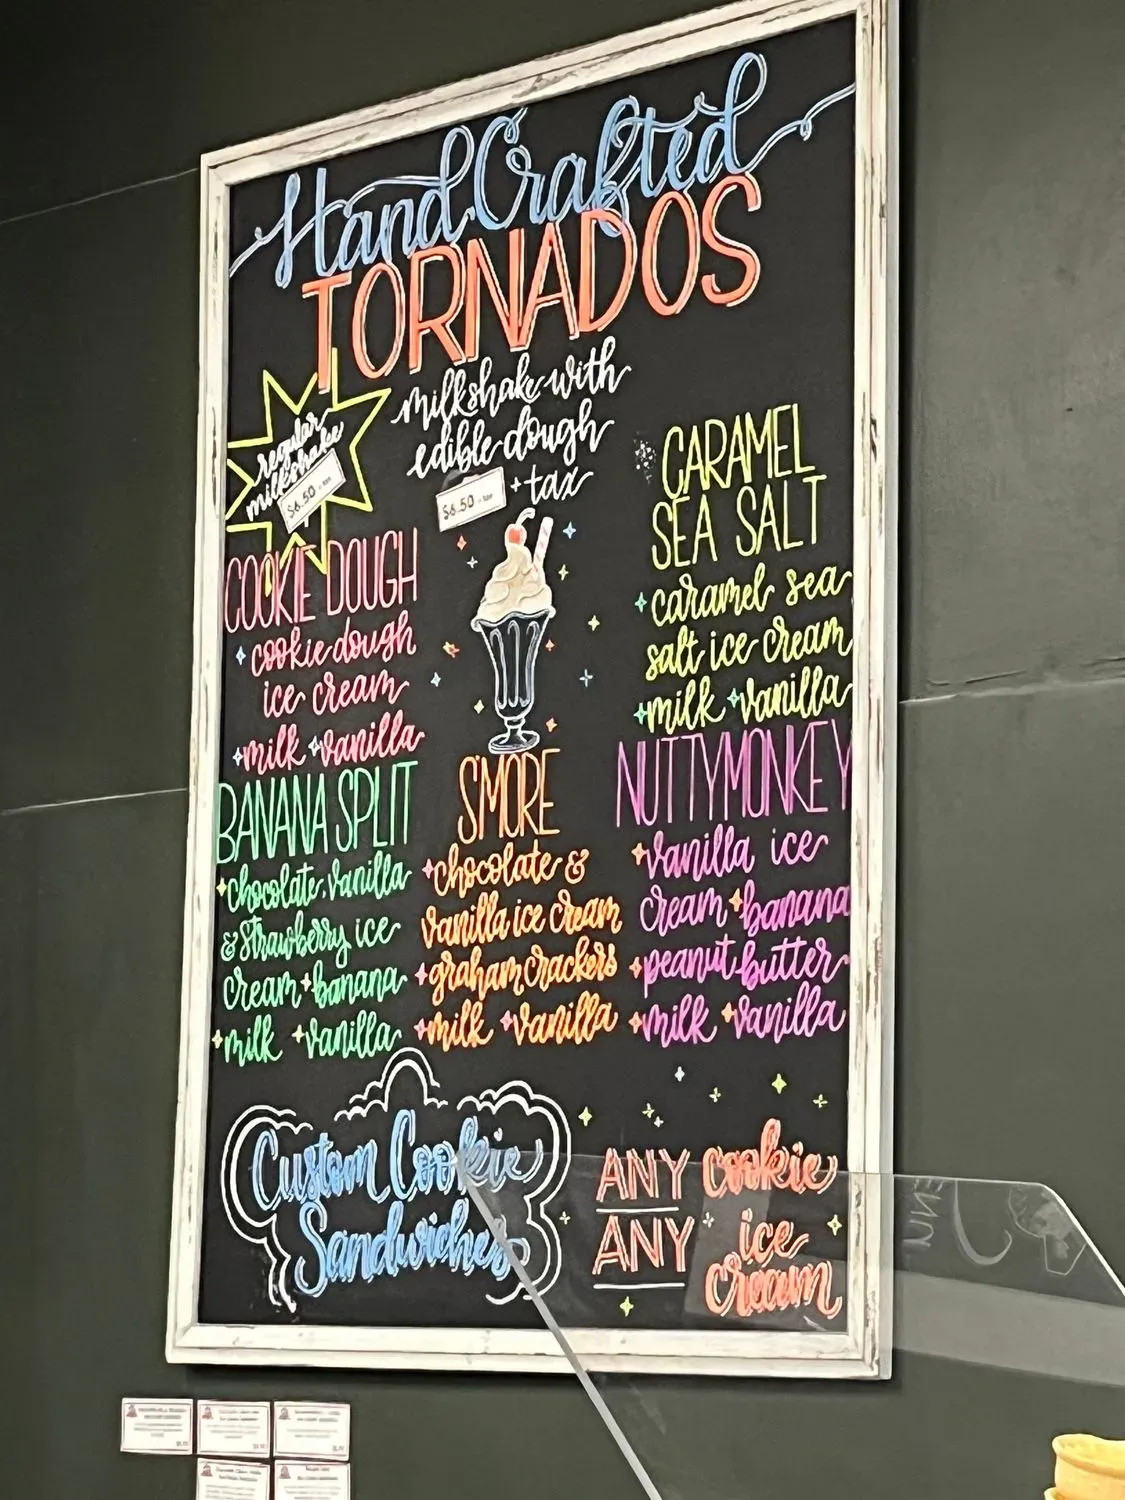 Hand Crafted
TORNADOS
milkshake with
edible dough
$6.50 + tax
+tax
regular
milkshake
$6.50 + tax
COOKIE DOUGH
+cookie dough
ice cream
+milk +vanilla
CARAMEL
SEA SALT
+caramel sea
salt ice cream
+milk +vanilla
BANANA SPLIT
+chocolate, vanilla
& strawberry ice
cream +banana
+milk +vanilla
S'MORE
+chocolate &
vanilla ice cream
+graham crackers
+milk +vanilla
NUTTY MONKEY
+vanilla ice
cream +banana
+peanut butter
+milk +vanilla
Custom Cookie
Sandwiches
ANY cookie
ANY ice
cream